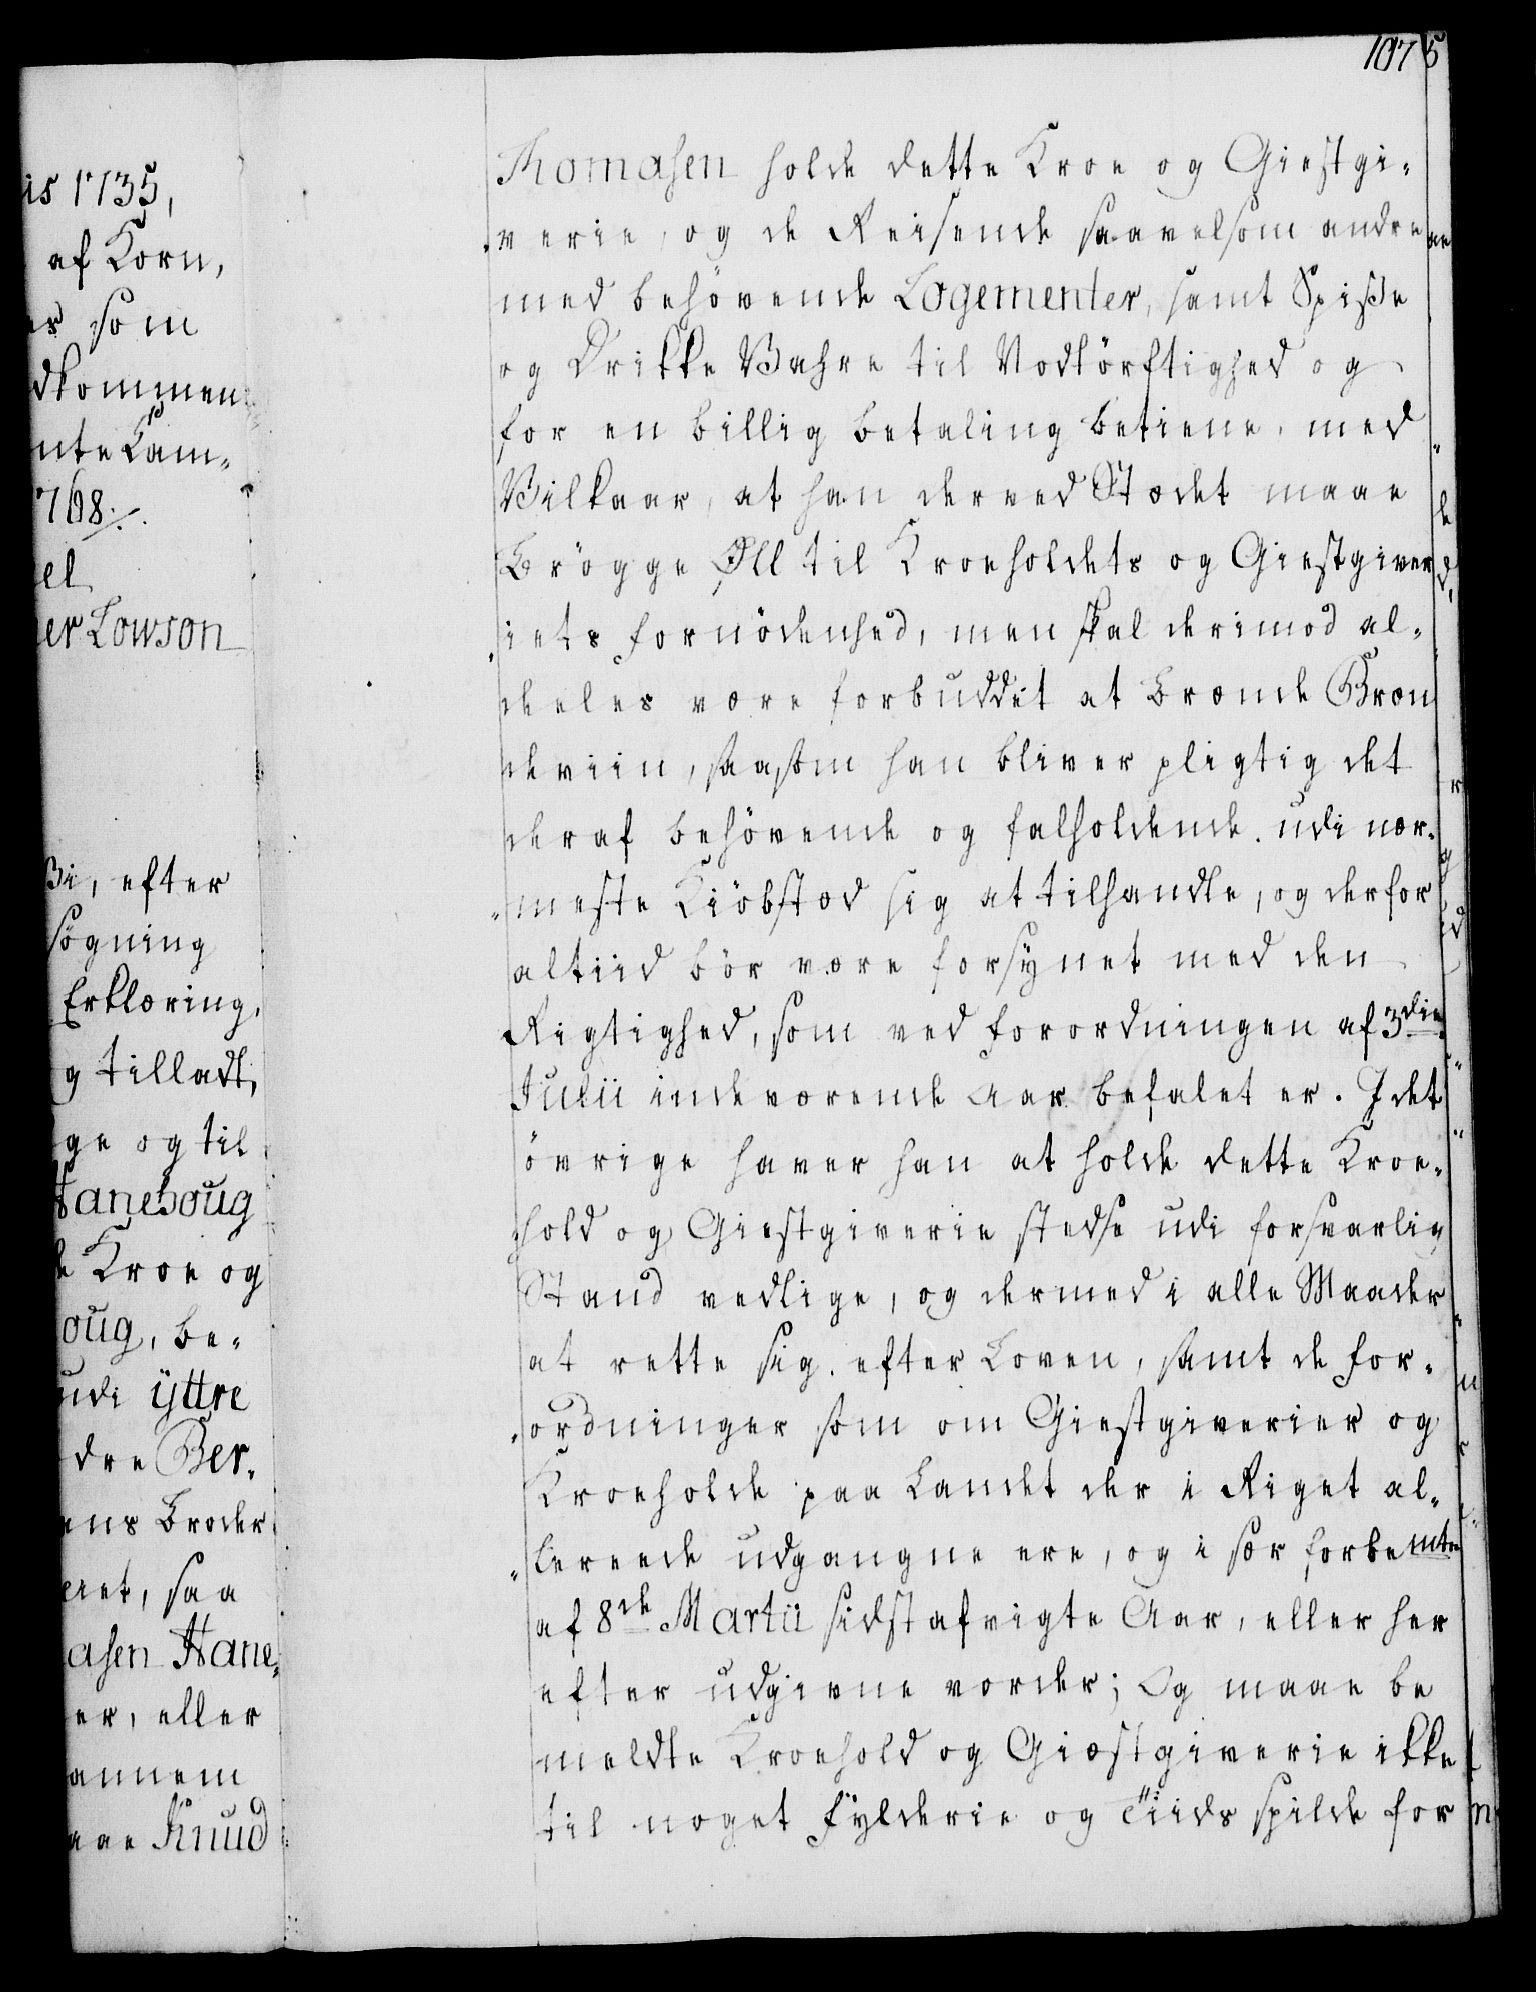 1075
is 1735,
af Korn,
som
dkommen
nte Cam„
768./.
el
er Lowson
Bi, efter
søgning
Erklæring,
g tilladt,
ge og til
Haneboug
Kroe og
oug, be„
udi ÿttre
dre Ber„
ens Broder
eret, saa
asen Hane„
er, eller
annem
aae Knud
Thomasen holde dette Kroe og Giestgi„
„verie, og de Reisende saavelsom andre
med behövende Logementer, samt Spisse
og Drikke Vahre til Nodtörftighed og
for en billig betaling betiene, med
Vilkaar, at han derved Stædet maae
Brögge Øll til Kroeholdets og Giestgiver
„iets fornödenhed, men skal derimod al„
deles være forbuddet at brænde Bræn
deviin, saasom han bliver pligtig det
deraf behövende og falholdende udi nær„
„meste Kiöbstæd sig at tilhandle, og derfor
altiid bör være forsÿnet med den
Rigtighed, som ved forordningen af 3die
Julii indeværende Aar befalet er. I det
övrige haver han at holde dette Kroe„
hold og Giestgiverie stedse udi forsvarlig
Stand vedlige, og dermed i alle Maader
at rette sig efter Loven, samt de For„
„ordninger som om Giestgiverier og
Kroeholde paa Landet der i Riget al„
„lereede udgangne ere, og i sær forbemte
af 8de Martii sidst afvigte Aar, eller her
efter udgivne vorder; Og maae be
meldte Kroehold og Giæstgiverie ikke
til noget Fÿlderie og Tiids spilde for